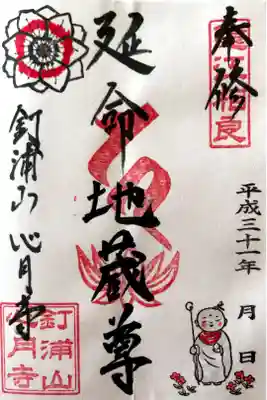 奉修
平成三十一年 月 日
延命地蔵尊
釘浦山 心月寺
釘浦山
心月寺